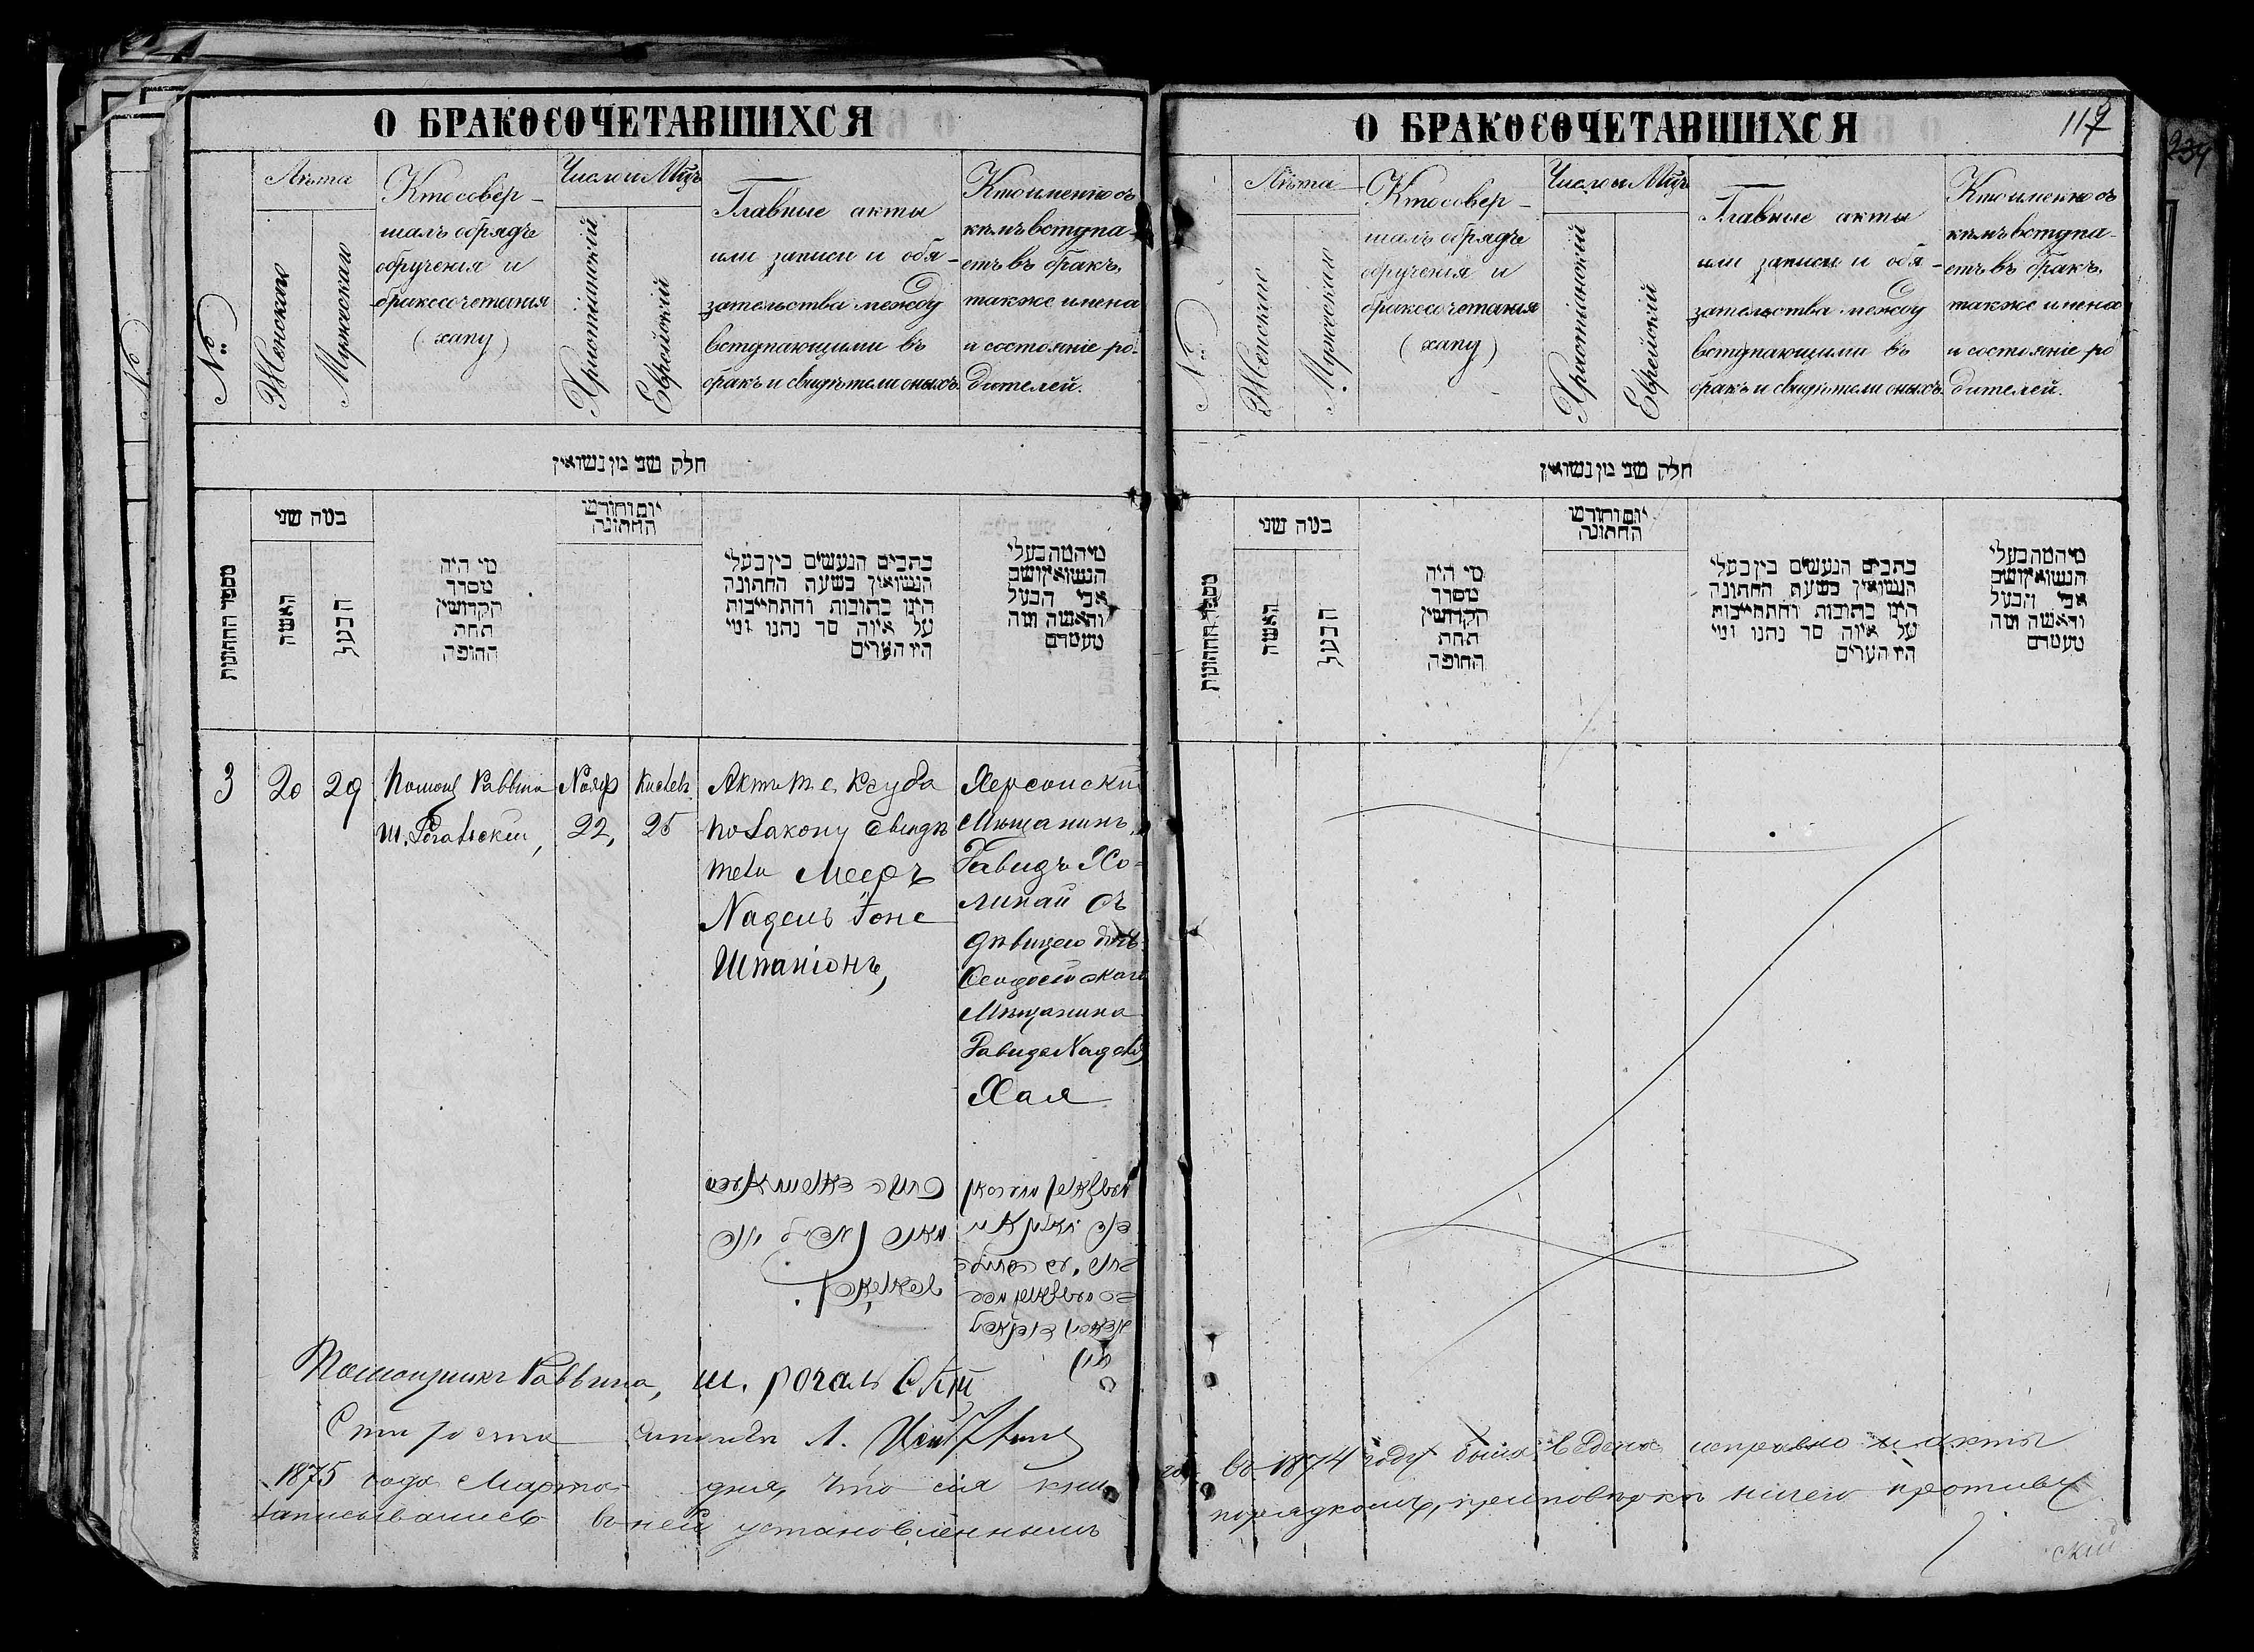 О БРАКОСОЧЕТАВШИХСЯ
№
Лѣта
Женскаго
Мужескаго
Кто совер-
шалъ обрядъ
обрученія и
бракосочетанія
(хапу)
Число и Мцъ
Христіанскій
Еврейскій
Главные акты
или записи и обя-
зательства между
вступающими въ
бракъ и свидѣтели оныхъ.
Кто именно съ
кѣмъ вступа-
етъ въ бракъ,
также имена
и состояніе ро-
дителей.
חלק שני מן נשואין
מספר החתונות
כמה שני
האשה
הבעל
מי היה
מסדר
הקדושין
תחת
החופה
יום וחודש
החתונה
כתבים הנעשים בין בעלי
הנשואין בשעת החתונה
היינו כתובות והתחייבות
על איזה סך נתנו ומי
היו העדים
מי המה בעלי
הנשואין ושם
אבי הבעל
והאשה ומה
מעמדם
3
20
29
Помощ Раввина
Ш. Рогальскій,
Нояр
22,
Кислевъ
25
Актъ т. е. Ксуба
по Закону свидѣ
тели Мееръ
Надель Іоне
Шпаніонъ,
Херсонскій
Мѣщанинъ
Давидъ Хо-
линай съ
дѣвицею
Ѳеодосійскаго
Мѣщанина
Давида Надель
Хая
Помощникъ Раввина, Ш. Рогальскій
Староста
1875 года Марта дня, что сія кни
записывались въ ней установленнымъ
О БРАКОСОЧЕТАВШИХСЯ
119
234
№
Лѣта
Женскаго
Мужескаго
Кто совер-
шалъ обрядъ
обрученія и
бракосочетанія
(хапу)
Число и Мцъ
Христіанскій
Еврейскій
Главные акты
или записи и обя-
зательства между
вступающими въ
бракъ и свидѣтели оныхъ.
Кто именно съ
кѣмъ вступа-
етъ въ бракъ,
также имена
и состояніе ро
дителей.
חלק שני מן נשואין
מספר החתונות
כמה שני
האשה
הבעל
מי היה
מסדר
הקדושין
תחת
החופה
יום וחודש
החתונה
כתבים הנעשים בין בעלי
הנשואין בשעת החתונה
היינו כתובות והתחייבות
על איזה סך נתנו ומי
היו העדים
מי המה בעלי
הנשואין ושם
אבי הבעל
והאשה ומה
מעמדם
га въ 1874 году была ведена исправно и акты
порядкомъ, при повѣркѣ ничего противу
скій